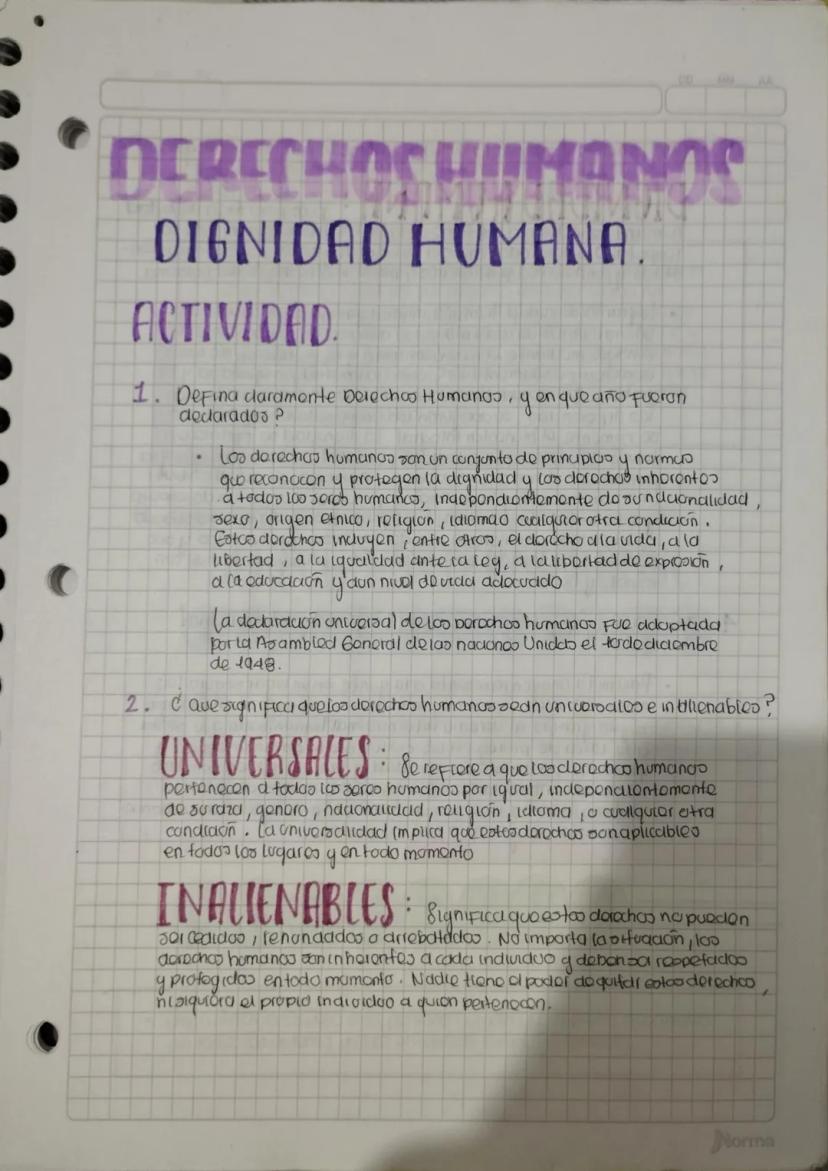 DERECHOS HUMANOS
DIGNIDAD HUMANA.
ACTIVIDAD.
1. Defina claramente Derechos Humanos, y en que año fueron
declarados?
• Los derechos humanos son un conjunto de principios y normas
que reconocen y protegen la dignidad y los derechos inherentes
a todos los seres humanos, independientemente de su nacionalidad,
sexo, origen etnico, religión, idioma o cualquier otra condición.
Estos derechos incluyen, entre otros, el derecho a la vida, a la
libertad, a la igualdad ante la ley, a la libertad de expresión,
a la educación y a un nivel de vida adecuado
La declaración universal de los Derechos humanos fue adoptada
por la Asamblea General de las naciones Unidas el 10 de diciembre
de 1948.
2. ¿ Que significa que los derechos humanos sean universales e inalienables?
UNIVERSALES: Se refiere a que los derechos humanos
pertenecen a todos los seres humanos por igual, independientemente
de su raza, genero, nacionalidad, religión, idioma, o cualquier otra
condición. La universalidad implica que estos derechos son aplicables
en todos los lugares y en todo momento
INALIENABLES: Significa que estos derechos no pueden
ser cedidos, renunciados o arrebatados. No importa la situación, los
derechos humanos son inherentes a cada individuo y deben ser respetados
y protegidos en todo momento. Nadie tiene el poder de quitar estos derechos,
ni siquiera el propio individuo a quien pertenecen.
Norma